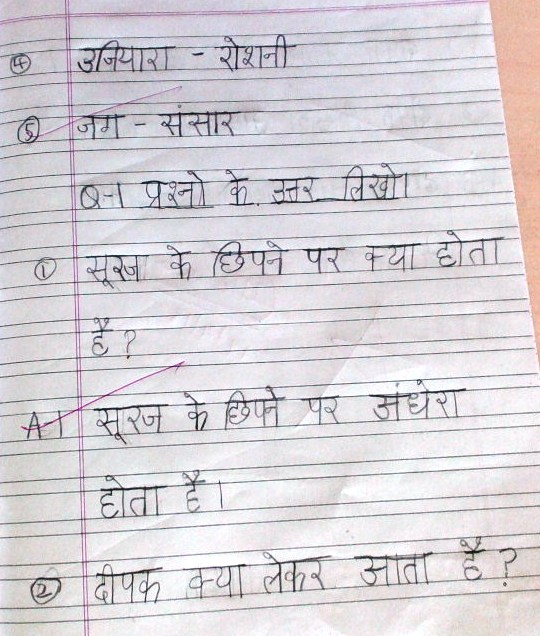 ④ उजियारा - रोशनी
⑤ जग - संसार
Q-1 प्रश्नो के उत्तर लिखो।
① सूरज के छिपने पर क्या होता
है?
A-1 सूरज के छिपने पर अंधेरा
होता है।
② दीपक क्या लेकर आता है?